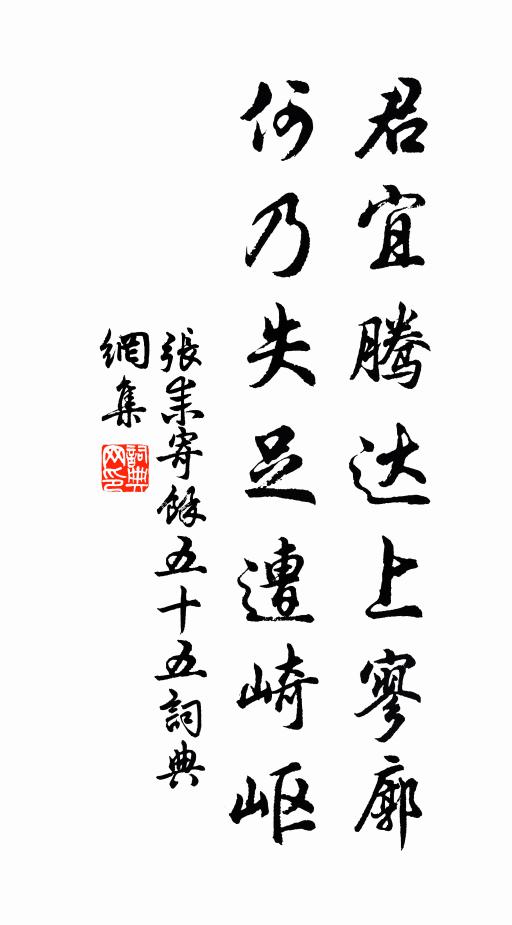 君宜腾达上寥廓
何乃失足遭崎岖
張耒寄餘五十五詞典
網集
詞典
网印